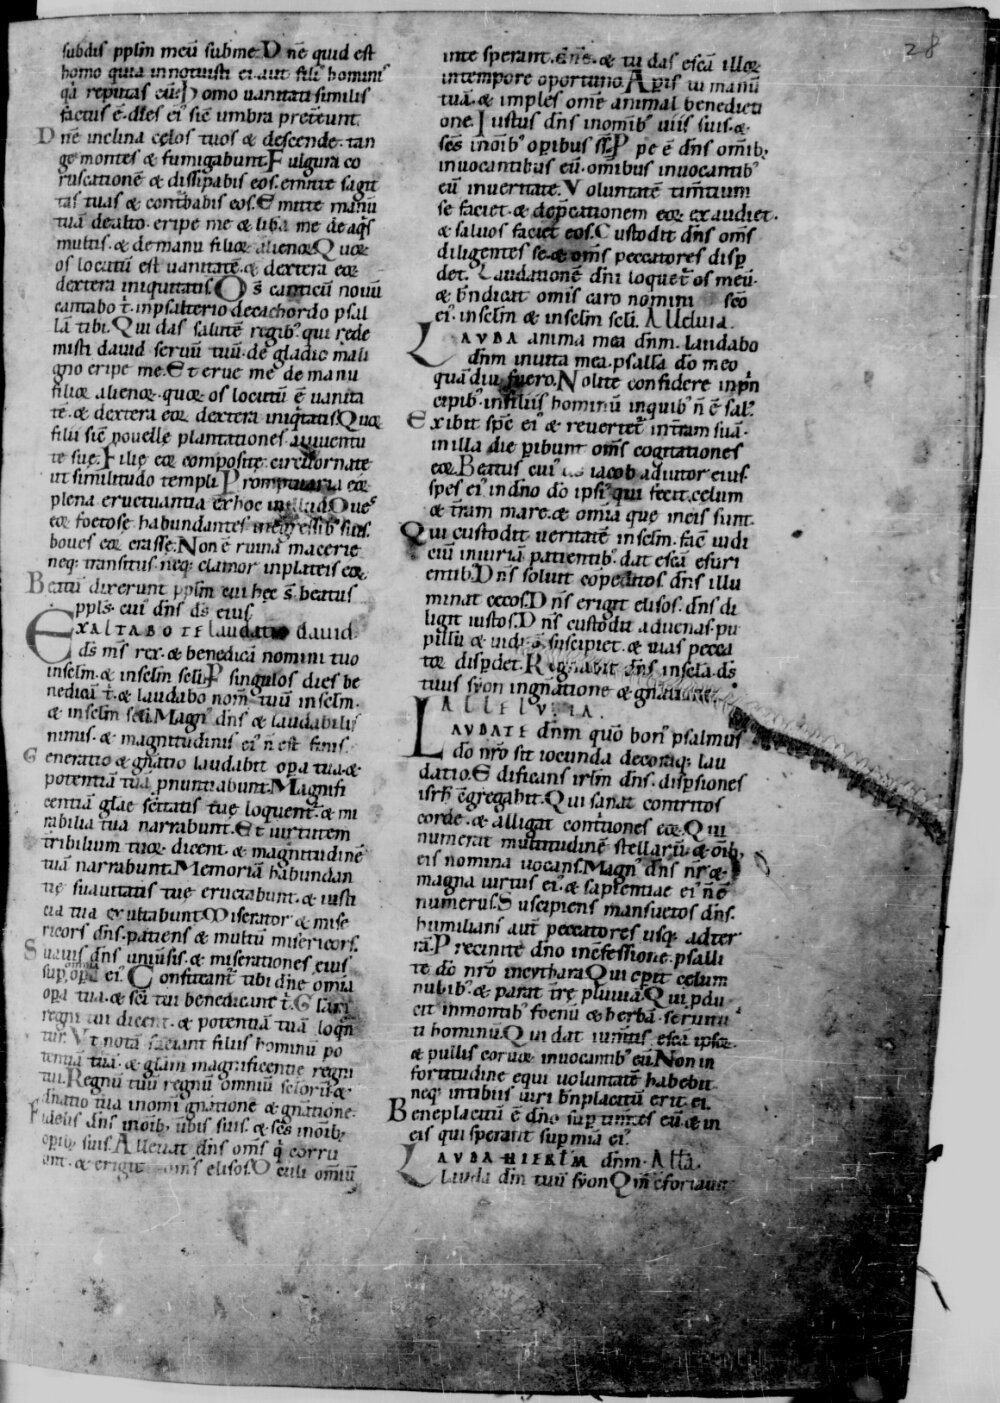 28
subdis pplm meū subme. Dñe quid est
homo quia innotuisti ei. aut fili hominis
qa reputas eū. Homo uanitati similis
factus ē. dies ei' sic umbra pretereunt.
Dñe inclina celos tuos & descende. tan
ge montes & fumigabunt. Fulgura co
ruscationē & dissipabis eos. emitte sagit
tas tuas & conturbabis eos. Emitte manū
tuā de alto. eripe me & libera me de aqis
multis. & de manu filioꝝ alienoꝝ. Quoꝝ
os locutū est uanitatē. & dextera eoꝝ
dextera iniquitatis. Ds canticū nouū
cantabo t. in psalterio decachordo psal
lā tibi. Qui das salutē regib' qui rede
misti dauid seruū tuū. de gladio mali
gno eripe me. Et erue me de manu
filioꝝ alienoꝝ. quoꝝ os locutū ē uanita
tē. & dextera eoꝝ dextera iniqtatis. Quoꝝ
filii sic nouelle plantationes a iuuentu
te sue. Filie eoꝝ composite. circūornate
ut similitudo templi. Promptuaria eoꝝ
plena eructuantia ex hoc in illud. Oues
eoꝝ foetose habundantes in egressib' suis.
boues eoꝝ crasse. Non ē ruina macerie
neq; transitus. neq; clamor in plateis eoꝝ.
Beatū dixerunt pplm cui hec s. beatus
ppls. cui' dñs ds eius.
EXALTABO TE laudatio dauid.
ds ms rex. & benedicā nomini tuo
in selm. & in selm seli. P singulos dies be
nedicā t. & laudabo nom tuū in selm.
& in selm seli. Magn' dñs & laudabilis
nimis. & magnitudinis ei' ñ est finis.
Generatio & gnatio laudabit opa tua. &
potentiā tuā pnuntiabunt. Magnifi
centiā glae scitatis tue loquent. & mi
rabilia tua narrabunt. Et uirtutem
tribilium tuoꝝ dicent. & magnitudinē
tuā narrabunt. Memoriā habundan
tie suauitatis tue eructabunt. & iusti
cia tua exultabunt. Miserator & mise
ricors dñs. patiens & multū misericors.
Suauis dñs uniusis. & miserationes eius
sup omnia opa ei'. Confiteant tibi dñe omia
opa tua. & sci tui benedicant t. Glari
regni tui dicent. & potentiā tuā loqn
tur. Vt notā faciant filiis hominū po
tentiā tuā. & glam magnificentie regni
tui. Regnū tuū regnū omniū seloru. &
dnatio tua in omi gnatione & gnatione.
Fidelis dñs in oib; ubis suis. & scs in oib;
opib; suis. Alleuat dñs oms q corru
unt. & erigit oms elisos. Oculi omiū
in te sperant dñe. & tu das escā illoꝝ
in tempore oportuno. Aperis tu manū
tuā. & imples ome animal benedicti
one. Iustus dñs in omib' uiis suis. &
scs in oib' opibus ss. Ppe ē dñs omib;
inuocantibus eū. omibus inuocantib'
eū in ueritate. Voluntatē timtium
se faciet. & depcationem eoꝝ exaudiet.
& saluos faciet eos. Custodit dñs oms
diligentes se. & oms peccatores disp
det. Laudationē dni loquet os meū.
& bndicat omis caro nomini sco
ei' in selm & in selm seli. Alleluia.
LAVDA anima mea dñm. laudabo
dñm in uita mea. psallā do meo
quādiu fuero. Nolite confidere in pn
cipib'. in filiis hominū in quib' ñ ē sal'.
Exibit spc ei' & reuertet in tram suā.
in illa die pibunt oms cogitationes
eoꝝ. Beatus cui' ds iacob adiutor eius
spes ei' in dno do ipsi' qui fecit celum
& tram mare. & omia que in eis sunt.
Qui custodit ueritatē in selm. facit iudi
ciū iniuriā patientib'. dat escā esuri
entib'. Dñs soluit copeditos dñs illu
minat cecos. Dñs erigit elisos. dñs di
ligit iustos. Dñs custodit aduenas. pu
pillū & uiduā suscipiet. & uias pecca
toꝝ dispdet. Regnabit dñs in sela. ds
tuus syon in gnatione & gnatione.
ALLELVIA.
LAVDATE dñm quō bon' psalmus
do nro sit iocunda decoraq; lau
datio. Edificans irlm dñs. dispsiones
isrh cgregabit. Qui sanat contritos
corde. & alligat contitiones eoꝝ. Qui
numerat multitudinē stellarū. & oib;
eis nomina uocans. Magn' dñs nr. &
magna uirtus ei'. & sapientiae ei' ñ ē
numerus. Suscipiens mansuetos dñs.
humilians aut peccatores usq; ad ter
rā. Precinite dno in cfessione. psalli
te do nro in cythara. Qui cpit celum
nubib'. & parat tre pluuiā. Qui pdu
cit in montib' foenū & herbā seruitu
ti hominū. Qui dat iumtis escā ipsoꝝ.
& pullis coruoꝝ inuocantib' eū. Non in
fortitudine equi uoluntatē habebit.
neq; in tibiis uiri bnplacitū erit ei.
Beneplacitū ē dno sup timtes eū. & in
eis qui sperant sup mia ei'.
LAVDA HIERLM dñm. Alla.
Lauda dm tuū syon. Qm cfortauit